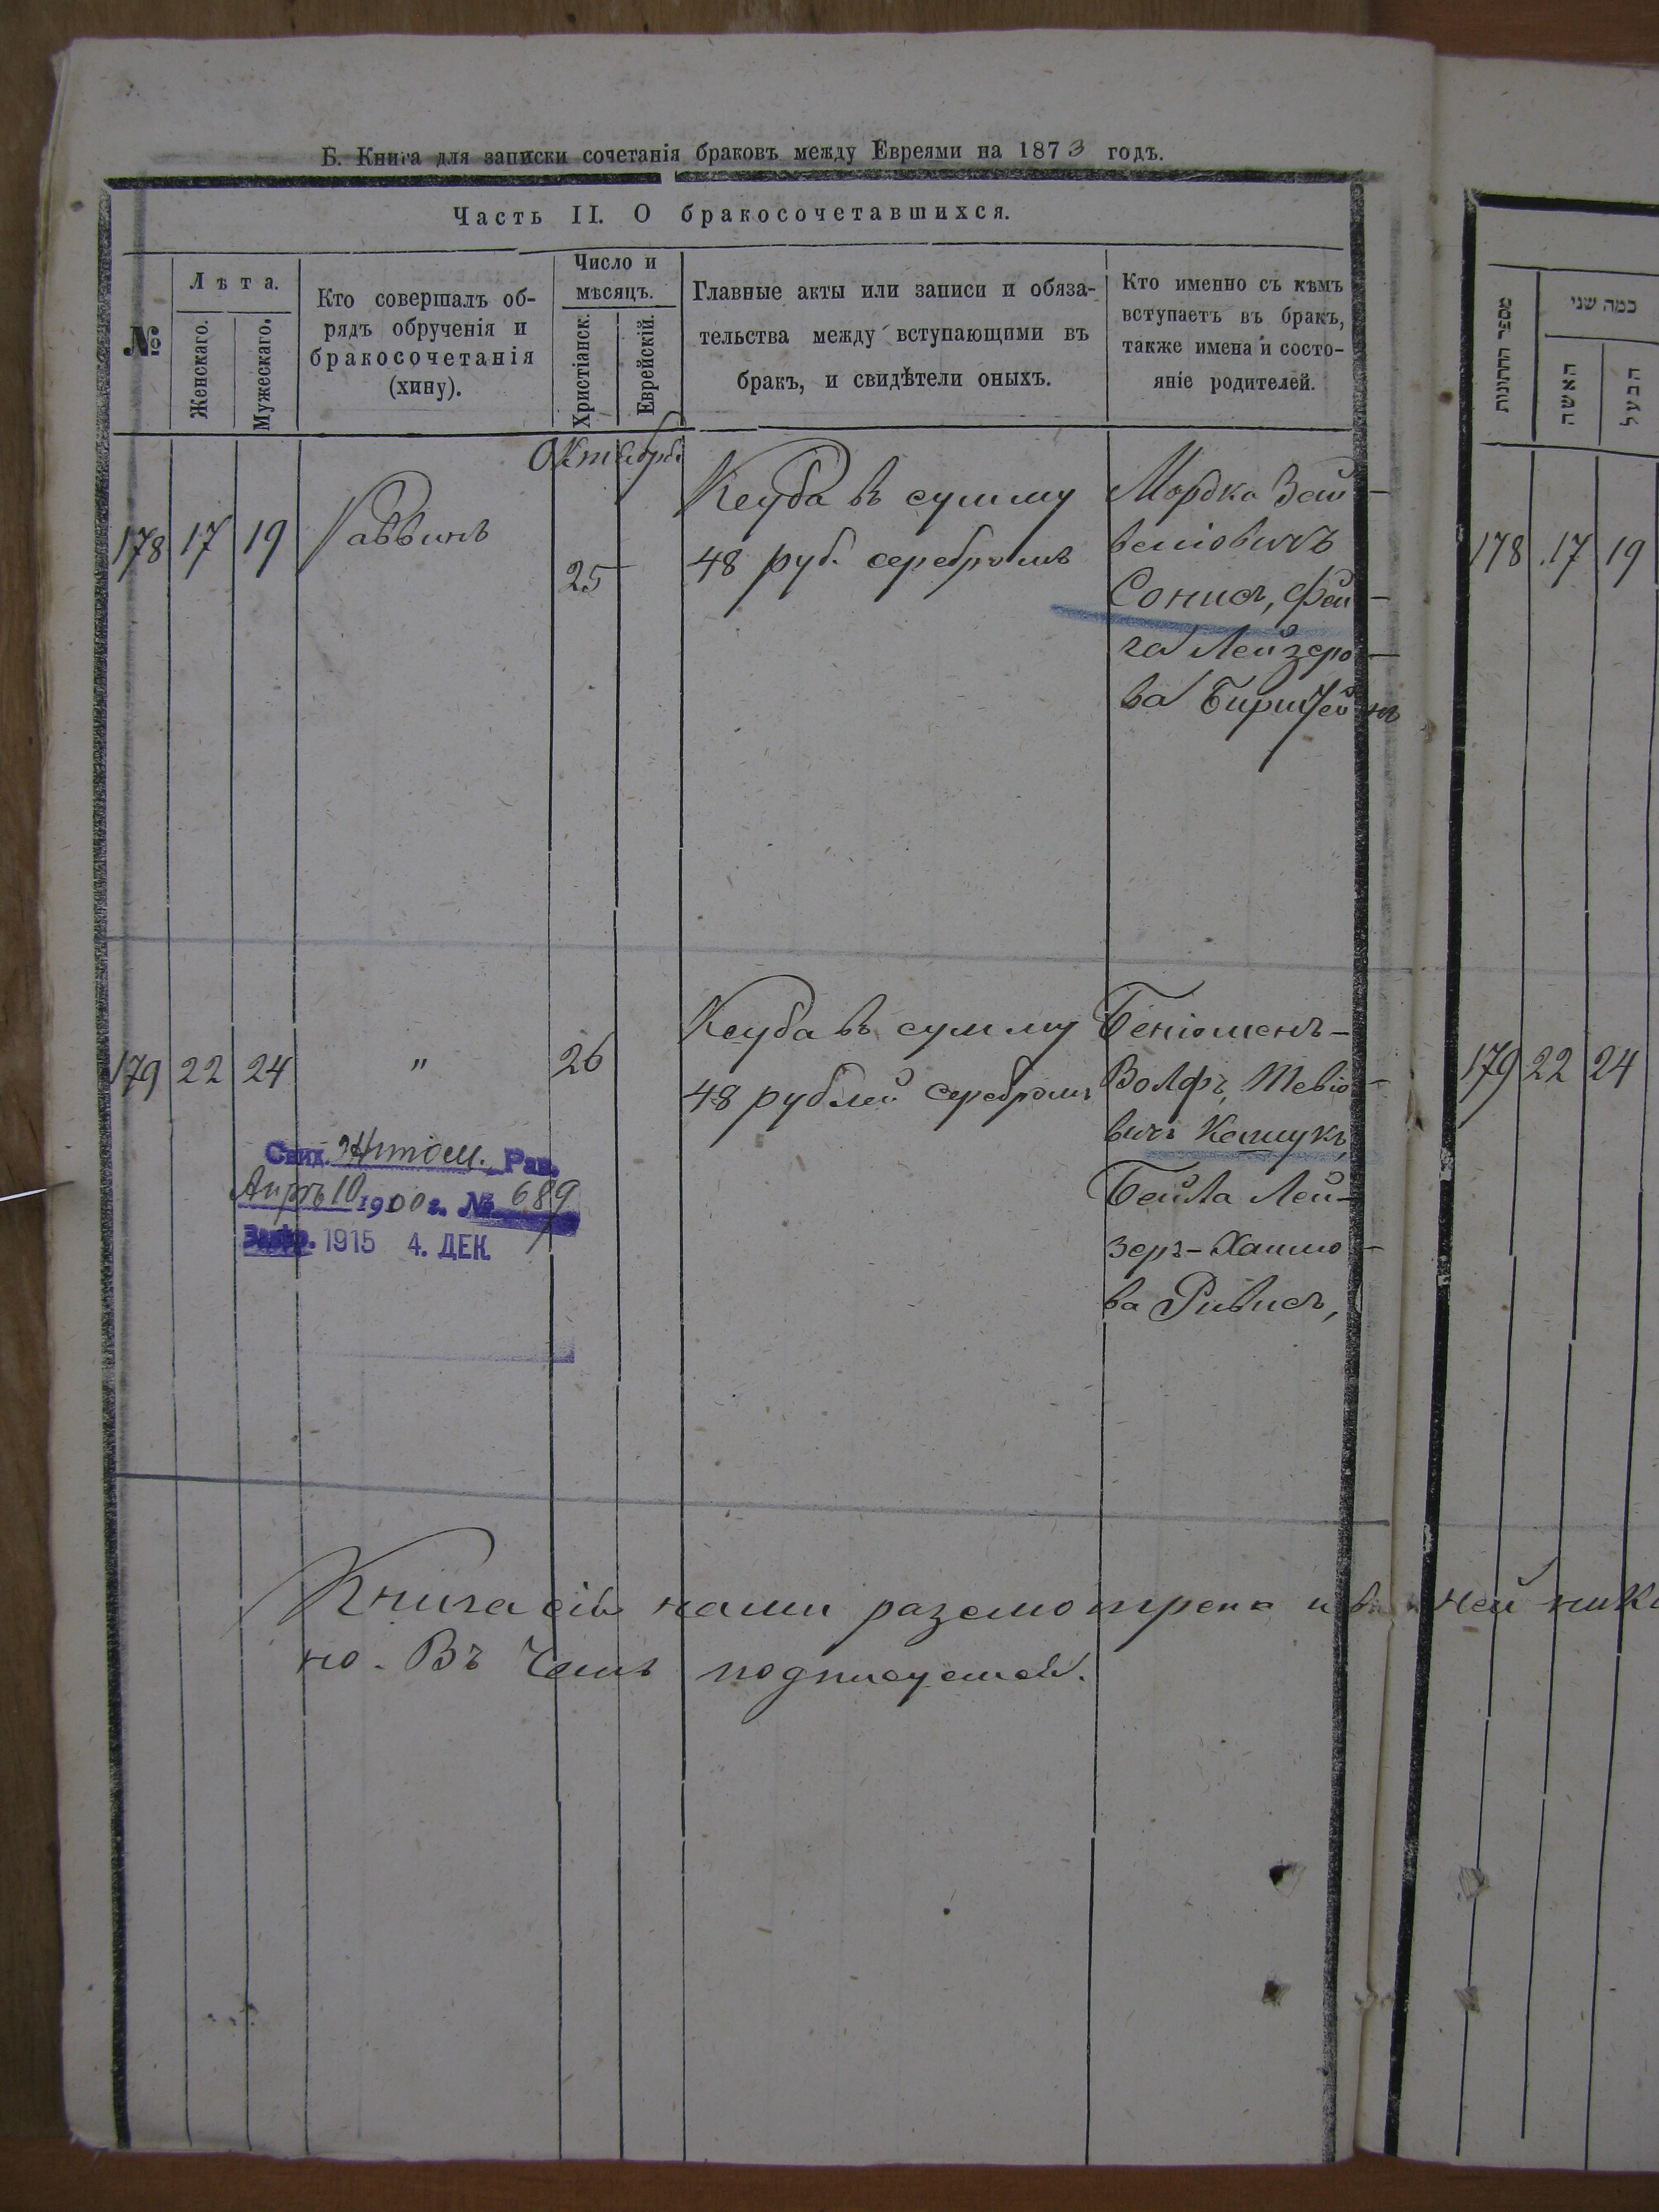 Б. Книга для записки сочетанія браковъ между Евреями на 1873 годъ.
Часть II. О бракосочетавшихся.
№
Лѣта.
Женскаго.
Мужескаго.
Кто совершалъ об-
рядъ обрученія и
бракосочетанія
(хину).
Число и
мѣсяцъ.
Христіанск.
Еврейскій.
Главные акты или записи и обяза-
тельства между вступающими въ
бракъ, и свидѣтели оныхъ.
Кто именно съ кѣмъ
вступаетъ въ бракъ,
также имена и состо-
яніе родителей.
מספר החתונות
כמה שני
האשה
הבעל
Октября
178 17 19 Раввинъ 25
Кеуба въ сумму
48 руб. серебромъ
Мордко Зай
веліовичъ
Сонисъ, Фей
га Лейзеро
ва
178 17 19
179 22 24 " 26
Кеуба въ сумму
48 рублей серебромъ
Беніоменъ-
Волфъ, Тевіо
вичъ
Бейла Лей-
зеръ-Хаимо
ва Ривисъ,
179 22 24
Свид. Житом. Рав.
Апрѣ 10 1900 г. № 689
1915 4. ДЕК.
Книга сія нами разсмотрена и въ ней
но. Въ чемъ подписуемся.